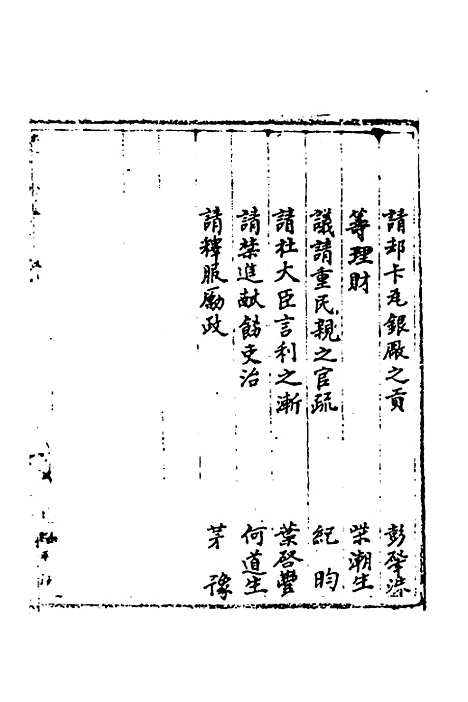 請却卡瓦銀厰之貢 彭肇洙
等理財 柴潮生
議請重民親之官疏 紀昀
請杜大臣言利之漸 葉啓豐
請禁進献飭吏治 何道生
請釋服勵政 茅豫